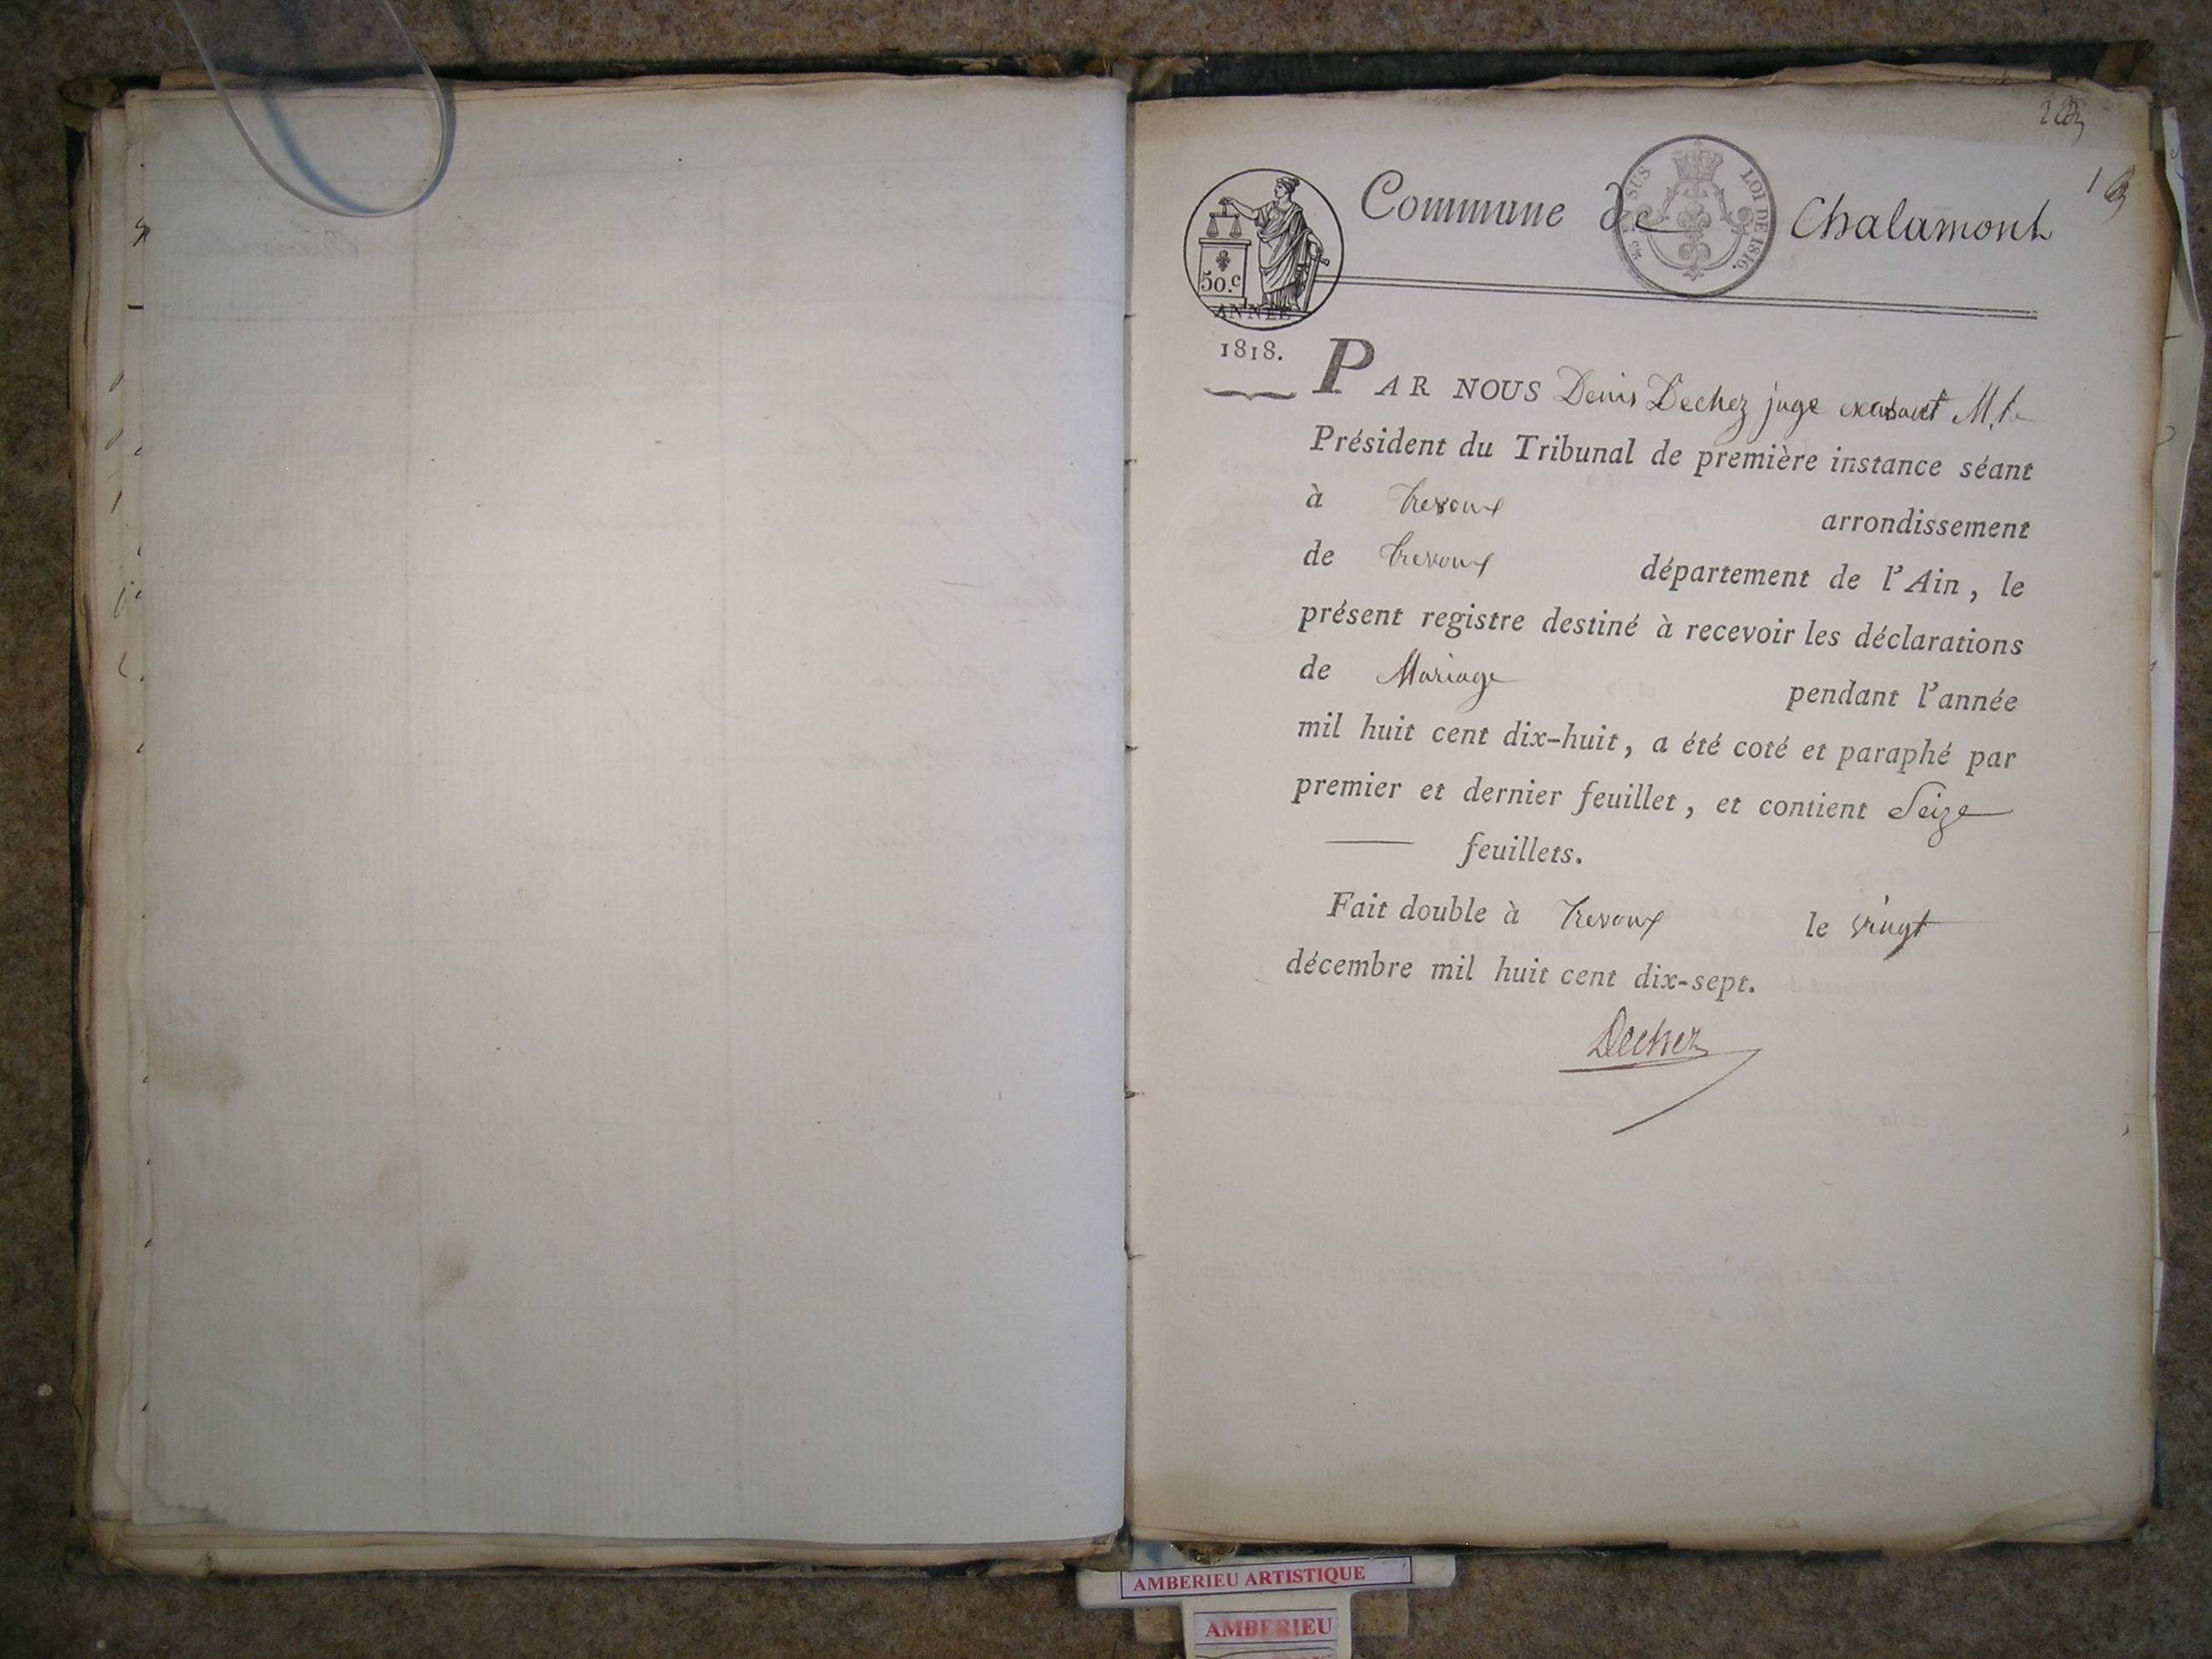 1
Commune de Chalamont
EN SUS
LOI DE 1816.
50.c
ANNÉE
1818.
PAR NOUS Denis Dechez juge exerçant M. le
Président du Tribunal de première instance séant
à Trevoux arrondissement
de Trevoux département de l'Ain, le
présent registre destiné à recevoir les déclarations
de Mariage pendant l'année
mil huit cent dix-huit, a été coté et paraphé par
premier et dernier feuillet, et contient Seize
feuillets.
Fait double à Trevoux le vingt
décembre mil huit cent dix-sept.
Dechez
AMBERIEU ARTISTIQUE
AMBERIEU